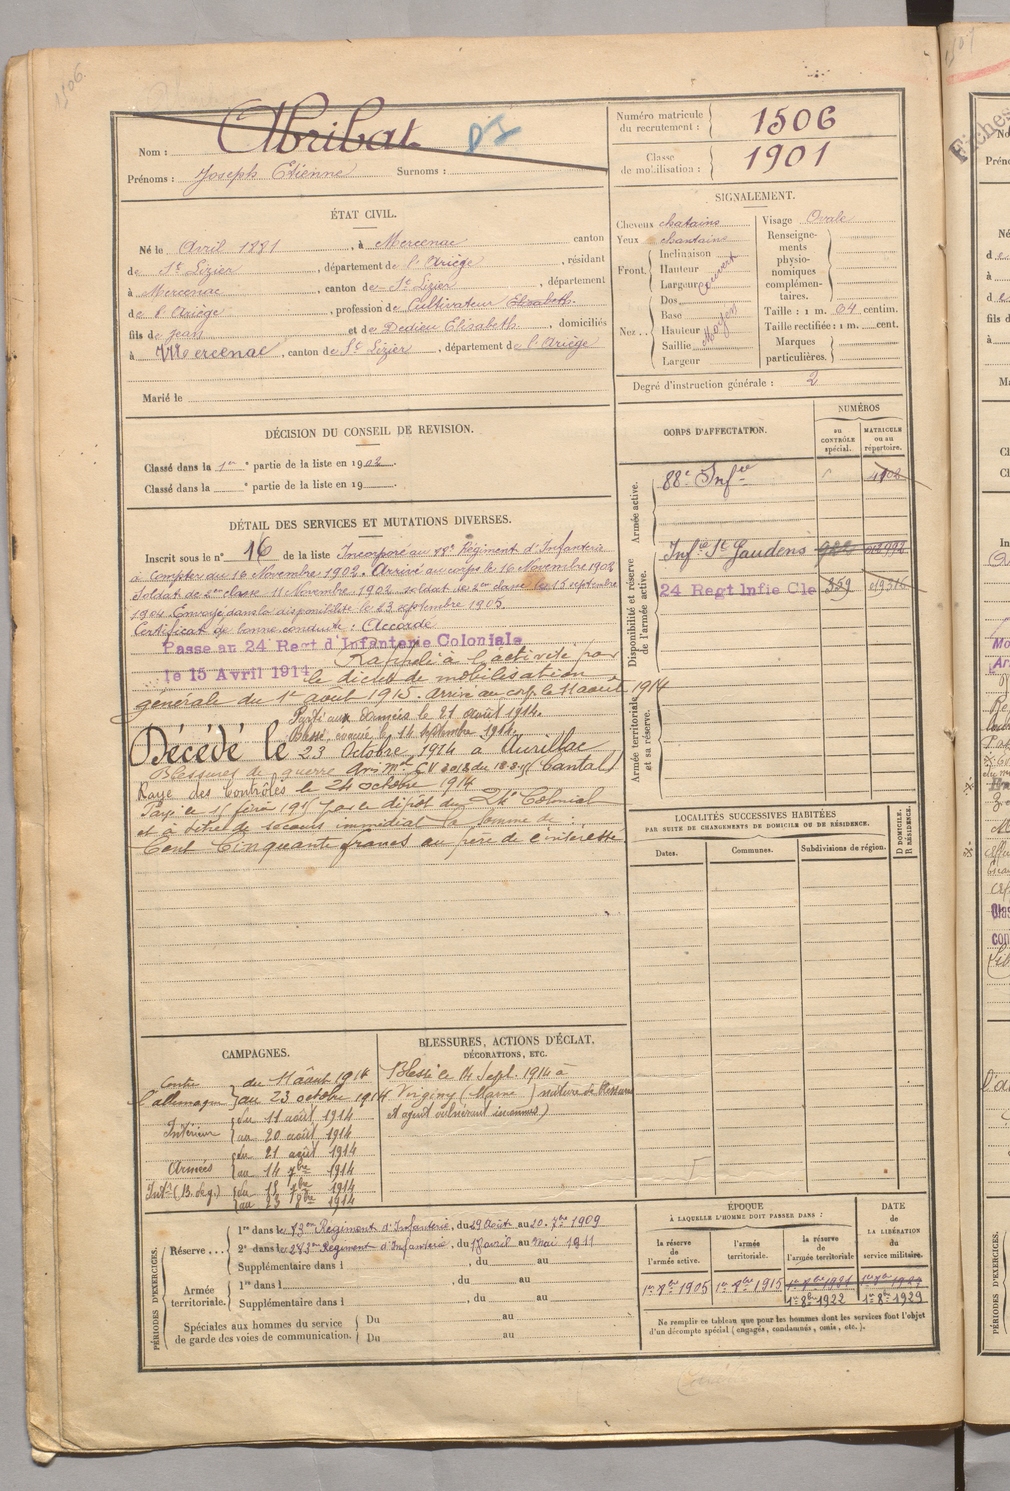 1506.
Abribat
Nom :
Prénoms : Joseph Etienne Surnoms :
Numéro matricule du recrutement : 1506
Classe de mobilisation : 1901
ÉTAT CIVIL.
Né le Avril 1881, à Mercenac canton
de St Lizier, département de l'Ariège, résidant
à Mercenac, canton de St Lizier, département
de l'Ariège, profession de Cultivateur Elisabeth.
fils de Jean et de Dedieu Elisabeth, domiciliés
à Mercenac, canton de St Lizier, département de l'Ariège
Marié le
SIGNALEMENT.
Cheveux chatains
Yeux chantains
Front. Inclinaison
Hauteur
Largeur
couvert
Nez. Dos
Base
Hauteur
Saillie
Largeur
Moyen
Visage Ovale
Renseigne-
ments
physio-
nomiques
complémen-
taires.
Taille : 1 m. 64 centim.
Taille rectifiée : 1 m. cent.
Marques
particulières.
Degré d'instruction générale : 2
DÉCISION DU CONSEIL DE REVISION.
Classé dans la 1re partie de la liste en 1902.
Classé dans la e partie de la liste en 19
CORPS D'AFFECTATION.
NUMÉROS
au
CONTRÔLE
spécial.
MATRICULE
ou au
répertoire.
Armée active.
88e Infie
Disponibilité et réserve
de l'armée active.
Infie St Gaudens
24 Regt Infie Cle 359
Armée territoriale
et sa réserve.
DÉTAIL DES SERVICES ET MUTATIONS DIVERSES.
Inscrit sous le n° 16 de la liste Incorporé au Régiment d'Infanterie
à compter du 16 Novembre 1902. Arrivé au corps le 16 Novembre 1902.
Soldat de 2me classe 11 Novembre 1902. soldat de classe le 15 septembre
1904. Envoyé dans la disponibilité le 23 septembre 1905.
Certificat de bonne conduite : Accordé
Passé au 24 Regt d'Infanterie Coloniale
le 15 Avril 1914
Rappelé à l'activité par
le décret de mobilisation
générale du 1er août 1915. Arrivé au corps le 11 août 1914
Parti aux Armées le 21 août 1914.
Blessé, évacué le 14 septembre 1914.
Décédé le 23 Octobre 1914 à Aurillac
Blessures de guerre (Cantal)
Rayé des Contrôles le 24 octobre 1914
Payé le 15 février 1915 par le dépôt du 24e Colonial
et à titre de secours immédiat la somme de :
Cent Cinquante francs au père de l'intéressé
LOCALITÉS SUCCESSIVES HABITÉES
PAR SUITE DE CHANGEMENTS DE DOMICILE OU DE RÉSIDENCE.
Dates.
Communes.
Subdivisions de région.
D DOMICILE.
R RÉSIDENCE.
CAMPAGNES.
Contre du 11 août 1914
l'allemagne au 23 octobre 1914
Intérieur du 11 août 1914
au 20 août 1914
Armées du 21 août 1914
au 14 7bre 1914
du 15 7bre 1914
au 23 8bre 1914
BLESSURES, ACTIONS D'ÉCLAT,
DÉCORATIONS, ETC.
Blessé le 14 Sept. 1914 à
Virginy (Marne) nature de blessure
et agent vulnérant inconnus)
PÉRIODES D'EXERCICES.
Réserve...
1re dans le 83me Régiment d'Infanterie, du 29 Août au 20. 7bre 1909
2e dans le 283me Régiment d'Infanterie, du avril au mai 1911
Supplémentaire dans l , du au
Armée
territoriale.
1re dans l , du au
Supplémentaire dans l , du au
Spéciales aux hommes du service
de garde des voies de communication.
Du au
Du au
ÉPOQUE
À LAQUELLE L'HOMME DOIT PASSER DANS :
la réserve
de
l'armée active.
l'armée
territoriale.
la réserve
de
l'armée territoriale
DATE
de
LA LIBÉRATION
du
service militaire.
1er 8bre 1922 1er 8bre 1929
Ne remplir ce tableau que pour les hommes dont les services font l'objet
d'un décompte spécial (engagés, condamnés, omis, etc.).
Fiches
PÉRIODES D'EXERCICES.